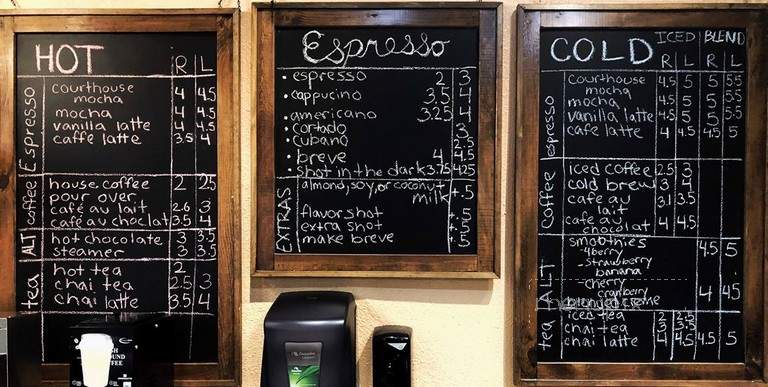 HOT
R L
Espresso
courthouse
mocha 4 4.5
mocha 4 4.5
vanilla latte 4 4.5
caffe latte 3.5 4
coffee
house coffee 2 2.5
pour over
café au lait 2.6 3
café au chocolat 3.5 4
ALT
hot chocolate 3 3.5
steamer 3 3.5
tea
hot tea 2
chai tea 2.5 3
chai latte 3.5 4
Espresso
• espresso 2 3
• cappucino 3.5 4
• americano 3.25 4
• cortado 3
• cubano 2.5
• breve 4 4.5
• shot in the dark 3.75 4.25
EXTRAS
almond, soy, or coconut
milk +.5
flavor shot +.5
extra shot +.5
make breve +.5
COLD
ICED BLEND
R L R L
espresso
courthouse
mocha 4.5 5 5 5.5
mocha 4.5 5 5 5.5
vanilla latte 4.5 5 5 5.5
cafe latte 4 4.5 4.5 5
Coffee
iced coffee 2.5 3
cold brew 3 4
cafe au
lait 3.1 3.5
cafe au
chocolat 4 4.5
ALT
smoothies 4.5 5
-4berry
-strawberry
banana
-cherry
cranberry 4 4.5
blended creme
tea
iced tea 2 2.5
chai tea 3 3.5
chai latte 4 4.5 4.5 5